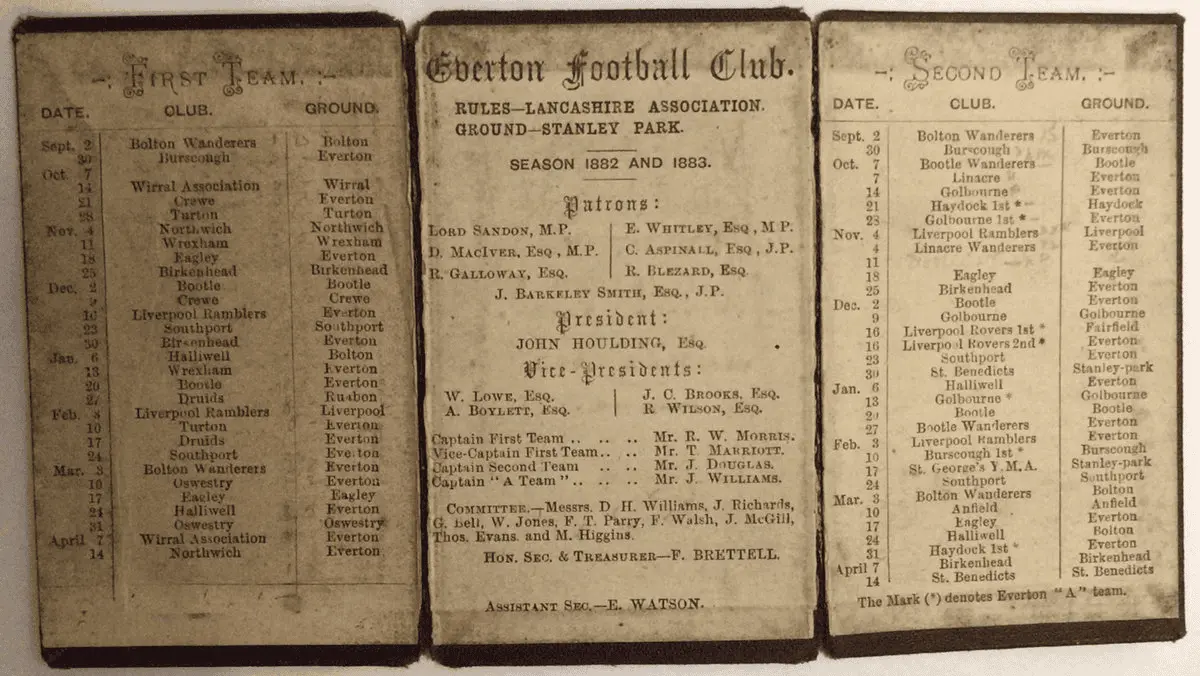 -: First Team. :-
DATE. CLUB. GROUND.
Sept. 2 Bolton Wanderers Bolton
30 Burscough Everton
Oct. 7
14 Wirral Association Wirral
21 Crewe Everton
28 Turton Turton
Nov. 4 Northwich Northwich
11 Wrexham Wrexham
18 Eagley Everton
25 Birkenhead Birkenhead
Dec. 2 Bootle Bootle
9 Crewe Crewe
16 Liverpool Ramblers Everton
23 Southport Southport
30 Birkenhead Everton
Jan. 6 Halliwell Bolton
13 Wrexham Everton
20 Bootle Everton
27 Druids Ruabon
Feb. 3 Liverpool Ramblers Liverpool
10 Turton Everton
17 Druids Everton
24 Southport Everton
Mar. 3 Bolton Wanderers Everton
10 Oswestry Everton
17 Eagley Eagley
24 Halliwell Everton
31 Oswestry Oswestry
April 7 Wirral Association Everton
14 Northwich Everton
Everton Football Club.
RULES—LANCASHIRE ASSOCIATION.
GROUND—STANLEY PARK.
SEASON 1882 AND 1883.
Patrons:
LORD SANDON, M.P. E. WHITLEY, Esq, M P.
D. MACIVER, Esq, M.P. C. ASPINALL, Esq, J.P.
R. GALLOWAY, Esq. R. BLEZARD, Esq.
J. BARKELEY SMITH, Esq., J.P.
President:
JOHN HOULDING, Esq.
Vice-Presidents:
W. LOWE, Esq. J. C. BROOKS, Esq.
A. BOYLETT, Esq. R WILSON, Esq.
Captain First Team .. .. .. Mr. R. W. MORRIS.
Vice-Captain First Team.. .. Mr. T. MARRIOTT.
Captain Second Team .. .. Mr. J. DOUGLAS.
Captain "A Team" .. .. .. Mr. J. WILLIAMS.
COMMITTEE.—Messrs. D. H. Williams, J. Richards,
G. Bell, W. Jones, F. T. Parry, F. Walsh, J. McGill,
Thos. Evans. and M. Higgins.
HON. SEC. & TREASURER—F. BRETTELL.
ASSISTANT SEC.—E. WATSON.
-: Second Team. :-
DATE. CLUB. GROUND.
Sept. 2 Bolton Wanderers Everton
30 Burscough Burscough
Oct. 7 Bootle Wanderers Bootle
7 Linacre Everton
14 Golbourne Everton
21 Haydock 1st * Haydock
28 Golbourne 1st * Everton
Nov. 4 Liverpool Ramblers Liverpool
4 Linacre Wanderers Everton
11
18 Eagley Eagley
25 Birkenhead Everton
Dec. 2 Bootle Everton
9 Golbourne Golbourne
16 Liverpool Rovers 1st * Fairfield
16 Liverpool Rovers 2nd * Everton
23 Southport Everton
30 St. Benedicts Stanley-park
Jan. 6 Halliwell Everton
13 Golbourne * Golbourne
20 Bootle Bootle
27 Bootle Wanderers Everton
Feb. 3 Liverpool Ramblers Everton
10 Burscough 1st * Burscough
17 St. George's Y.M.A. Stanley-park
24 Southport Southport
Mar. 3 Bolton Wanderers Bolton
10 Anfield Anfield
17 Eagley Everton
24 Halliwell Bolton
31 Haydock 1st * Everton
April 7 Birkenhead Birkenhead
14 St. Benedicts St. Benedicts
The Mark (*) denotes Everton "A" team.